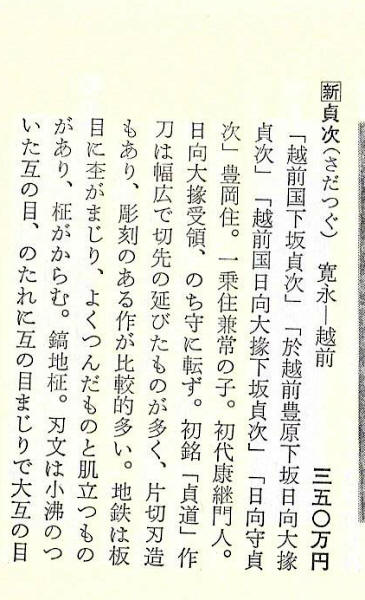 新貞次(さだつぐ) 寛永―越前 三五〇万円
「越前国下坂貞次」「於越前豊原下坂日向大掾
貞次」「越前国日向大掾下坂貞次」「日向守貞
次」豊岡住。一乗住兼常の子。初代康継門人。
日向大掾受領、のち守に転ず。初銘「貞道」作
刀は幅広で切先の延びたものが多く、片切刃造
もあり、彫刻のある作が比較的多い。地鉄は板
目に杢がまじり、よくつんだものと肌立つもの
があり、柾がからむ。鎬地柾。刃文は小沸のつ
いた互の目、のたれに互の目まじりで大互の目